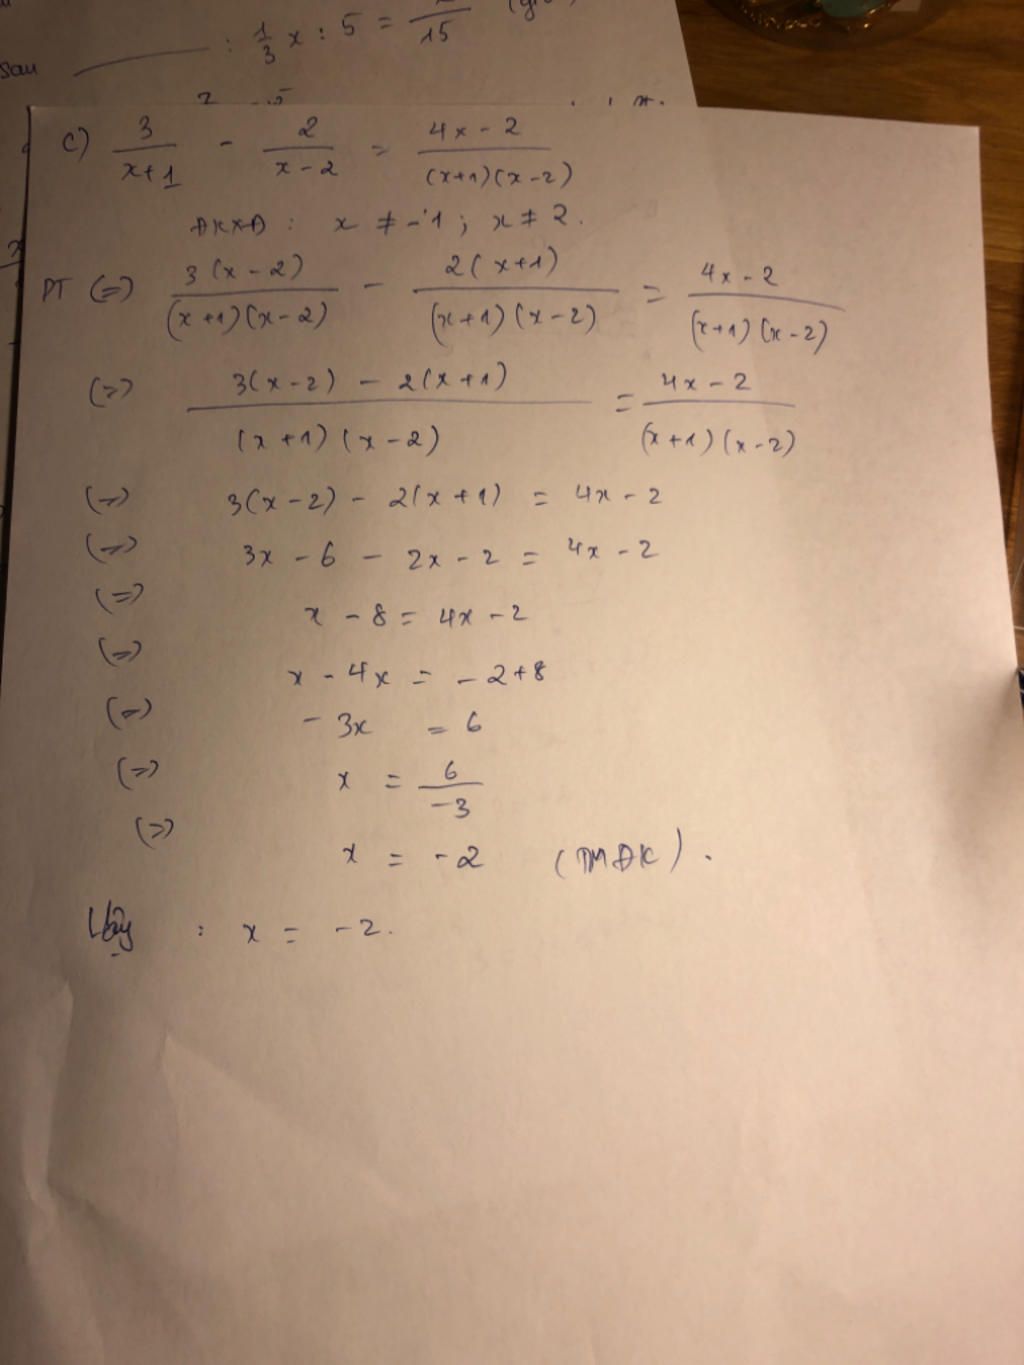 Sau : 1/3 x : 5 = /15
c) 3/(x+1) - 2/(x-2) = (4x-2)/((x+1)(x-2))
ĐKXĐ : x ≠ -1 ; x ≠ 2.
PT (=) 3(x-2)/((x+1)(x-2)) - 2(x+1)/((x+1)(x-2)) = (4x-2)/((x+1)(x-2))
(=) (3(x-2) - 2(x+1))/((x+1)(x-2)) = (4x-2)/((x+1)(x-2))
(=) 3(x-2) - 2(x+1) = 4x-2
(=) 3x - 6 - 2x - 2 = 4x - 2
(=) x - 8 = 4x - 2
(=) x - 4x = -2+8
(=) -3x = 6
(=) x = 6/-3
(=) x = -2 (TMĐK).
Vậy : x = -2.